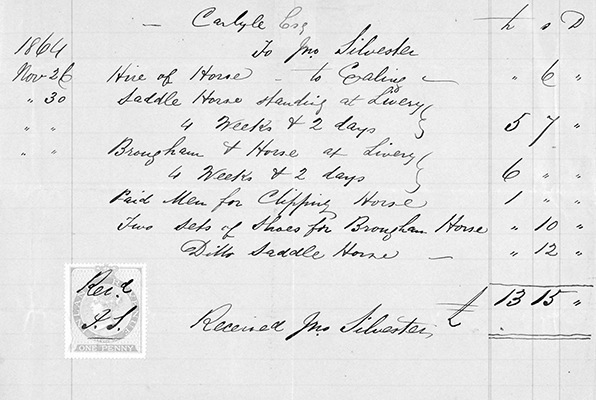 Carlyle Esq £ s D
1864 To Jno Silvester
Nov 26 Hire of Horse - to Ealing - " 6 "
" 30 Saddle Horse standing at Livery
" " 4 Weeks & 2 days 5 7 "
" " Brougham & Horse at Livery
4 Weeks & 2 days 6 " "
Paid Men for Clipping Horse 1 " "
Two sets of Shoes for Brougham Horse " 10 "
Ditto Saddle Horse - " 12 "
£ 13 15 "
Received Jno Silvester
Rec.d
J.S.
ONE PENNY